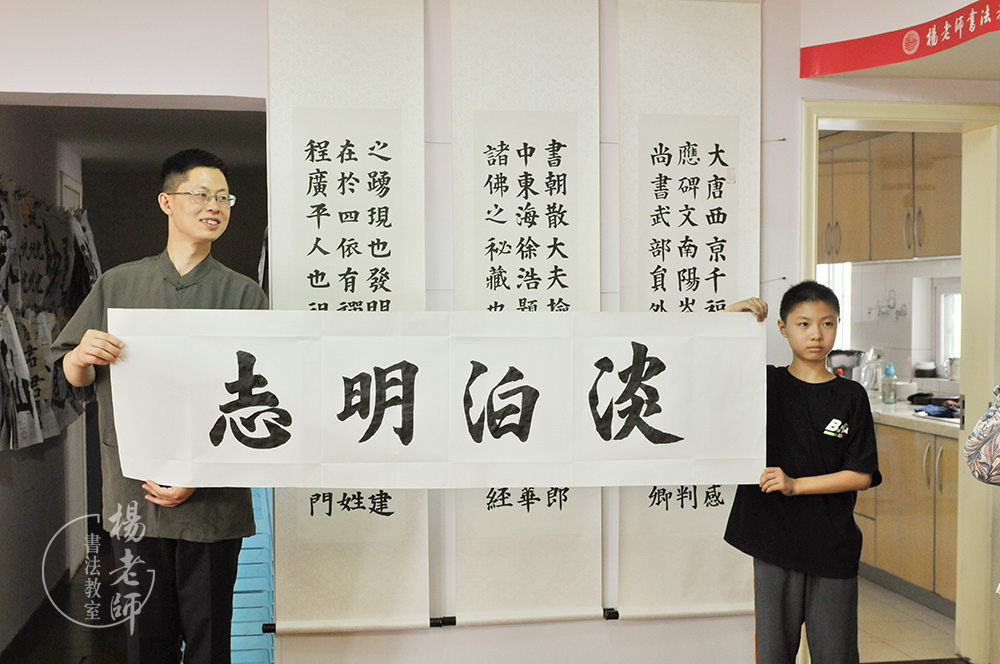 楊老師書法
淡泊明志
大唐西京千福
感
應碑文南陽岑
判
尚書武部員外
卿
書朝散大夫檢
郎
中東海徐浩題
華
諸佛之秘藏也
經
之踴現也發明
建
在於四依有禪
姓
程廣平人也
門
楊老師
書法教室